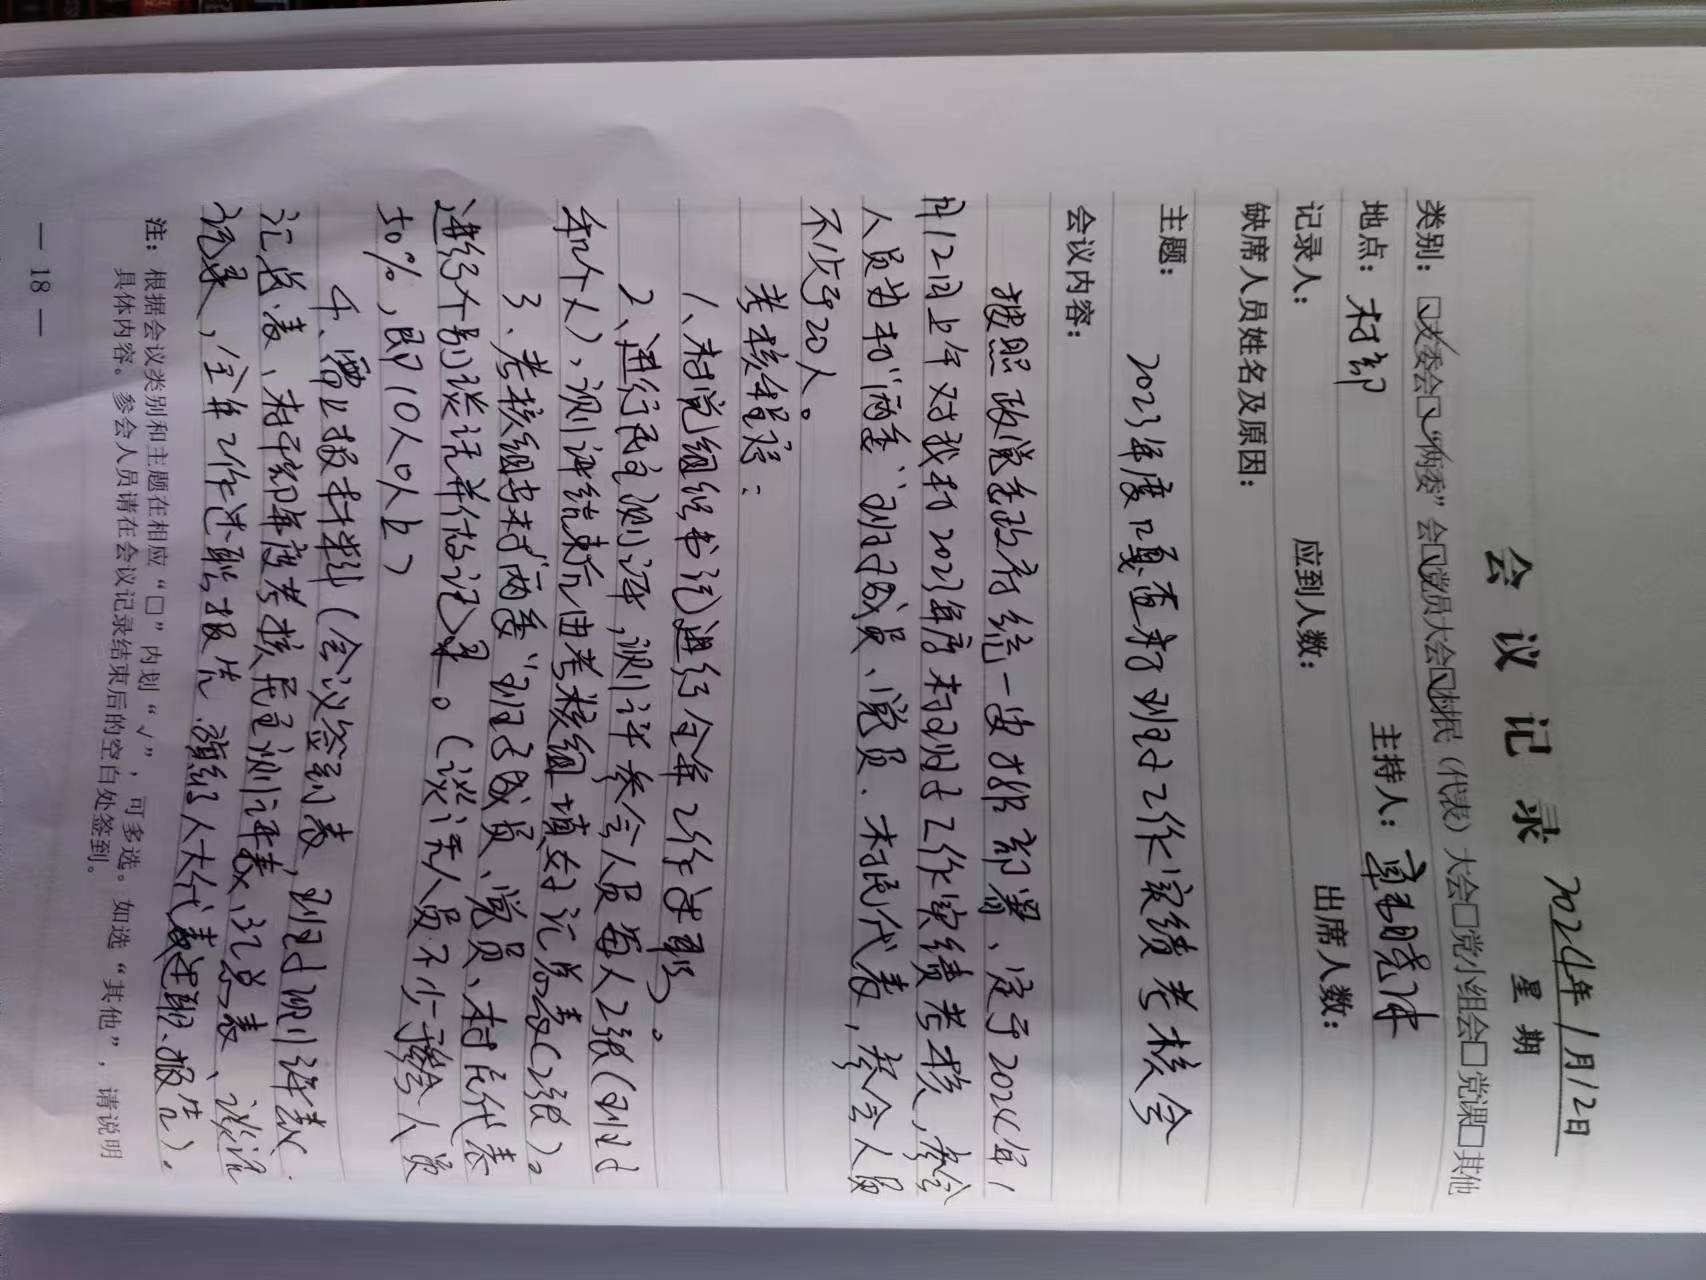 会 议 记 录
2024年1月12日
星 期
类别：☑支委会☑“两委”会☑党员大会☑村民（代表）大会□党小组会□党课□其他
地点：村部 主持人：
记录人： 应到人数： 出席人数：
缺席人员姓名及原因：
主题： 2023年度嘎查村班子工作实绩考核会
会议内容：
按照政党委政府统一安排部署、定于2024年1
月12日上午对我村2023年度村班子工作实绩考核，参会
人员为村“两委”班子成员、党员、村民代表，参会人员
不少于20人。
考核程序：
1、村党组织书记进行全年工作述职。
2、进行民主测评，测评参会人员每人2张（班子
和个人），测评结束后由考核组填好汇总表（2张）。
3、考核组与村“两委”班子成员、党员、村民代表
进行个别谈话并做记录。（谈话人员不少于参会人员
50%，即10人以上）
4、需上报材料（会议签到表，班子测评表
汇总表、村干部年度考核民主测评表、汇总表、谈话
记录，全年工作述职报告、旗级人大代表述职报告）。
注：根据会议类别和主题在相应“□”内划“√”，可多选。如选“其他”，请说明
具体内容。参会人员请在会议记录结束后的空白处签到。
— 18 —